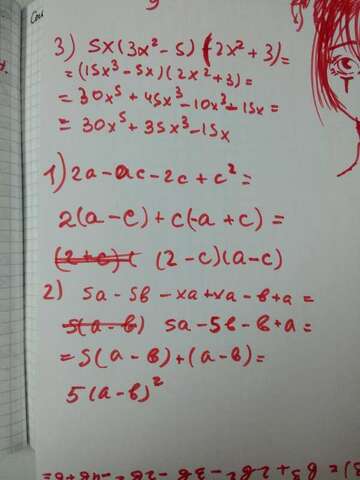 3) 5x(3x² - 5)(2x² + 3) =
= (15x³ - 5x)(2x² + 3) =
= 30x⁵ + 45x³ - 10x³ - 15x =
= 30x⁵ + 35x³ - 15x
1) 2a - ac - 2c + c² =
2(a - c) + c(-a + c) =
(2 + c)( (2 - c)(a - c)
2) 5a - 5b - xa + xa - b + a =
5(a - b) 5a - 5b - b + a =
= 5(a - b) + (a - b) =
5(a - b)²